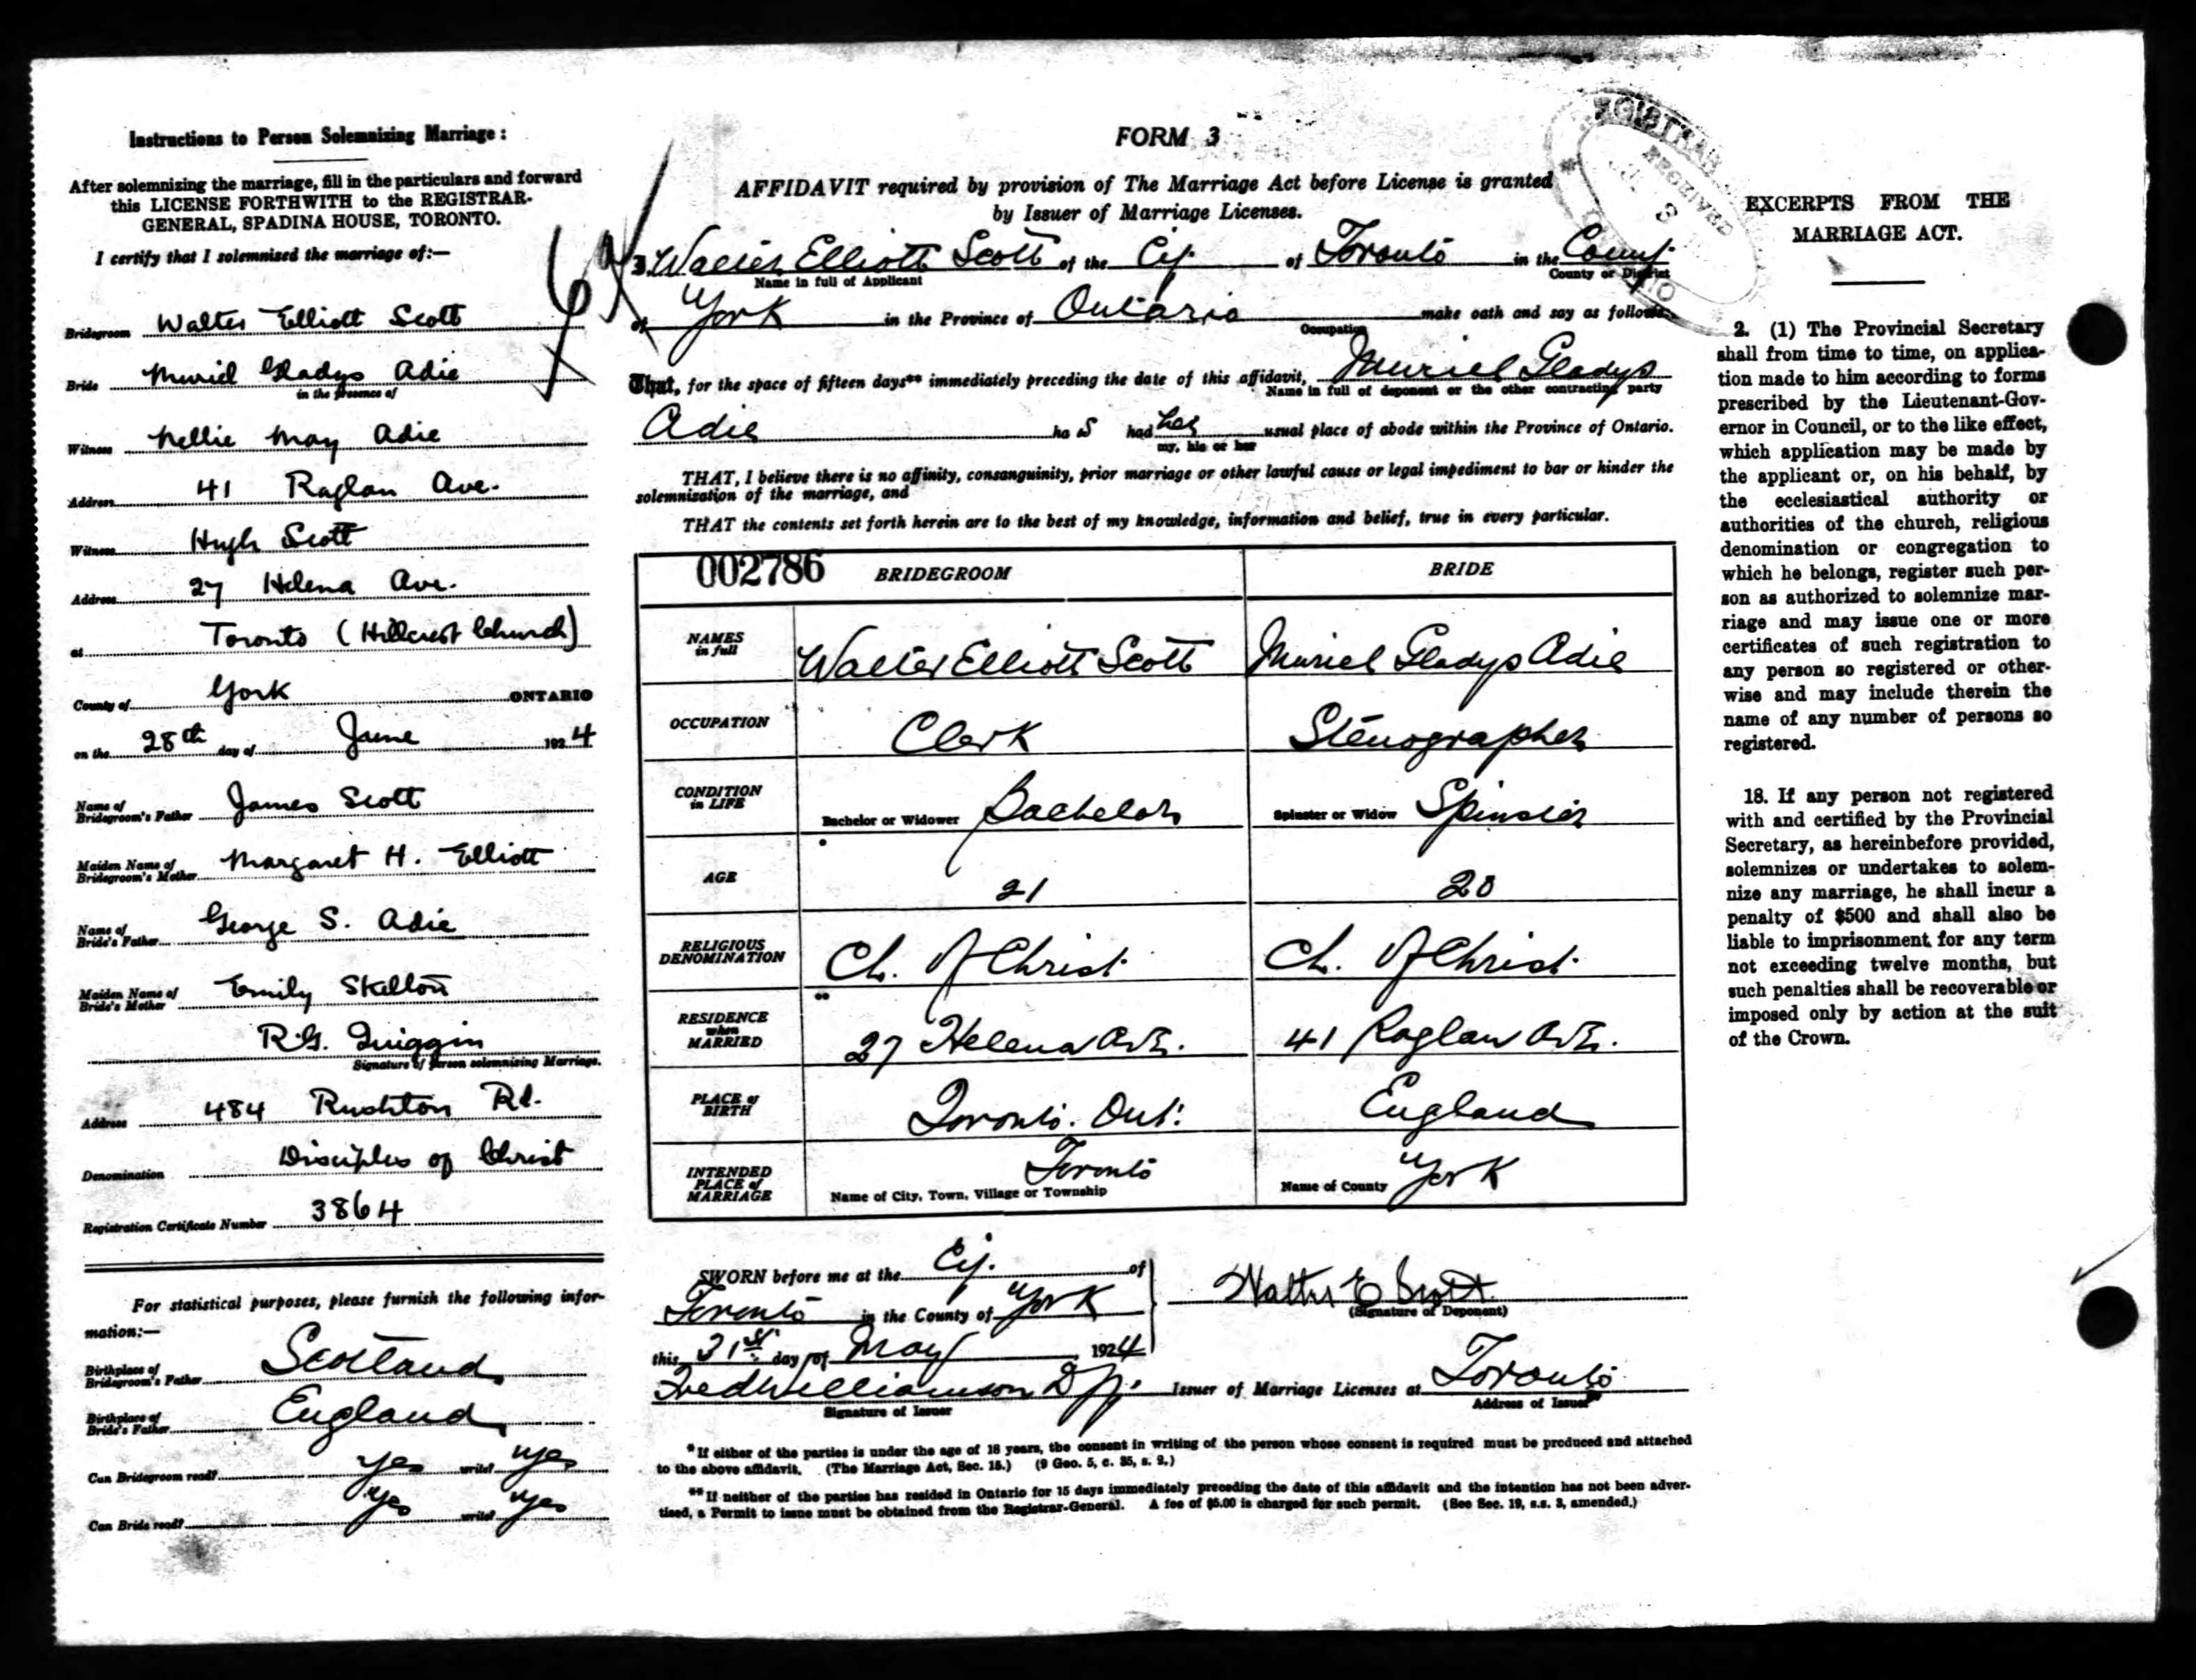 Instructions to Person Solemnizing Marriage :
After solemnizing the marriage, fill in the particulars and forward
this LICENSE FORTHWITH to the REGISTRAR-
GENERAL, SPADINA HOUSE, TORONTO.
I certify that I solemnized the marriage of:—
Bridegroom Walter Elliott Scott
Bride Muriel Gladys Adie
in the presence of
Witness Nellie May Adie
Address 41 Raglan Ave.
Witness Hugh Scott
Address 27 Helena Ave.
at Toronto (Hillcrest Church)
County of York ONTARIO
on the 28th day of June 1924
Name of
Bridegroom's Father James Scott
Maiden Name of
Bridegroom's Mother Margaret H. Elliott
Name of
Bride's Father George S. Adie
Maiden Name of
Bride's Mother Emily Skelton
R.G. Quiggin
Signature of person solemnizing Marriage.
Address 484 Rushton Rd.
Denomination Disciples of Christ
Registration Certificate Number 3864
For statistical purposes, please furnish the following infor-
mation:—
Birthplace of
Bridegroom's Father Scotland
Birthplace of
Bride's Father England
Can Bridegroom read? yes write? yes
Can Bride read? yes write? yes
FORM 3
AFFIDAVIT required by provision of The Marriage Act before License is granted
by Issuer of Marriage Licenses.
I, Walter Elliott Scott of the City of Toronto in the County
Name in full of Applicant County or District
of York in the Province of Ontario make oath and say as follows:
Occupation
That, for the space of fifteen days** immediately preceding the date of this affidavit, Muriel Gladys
Name in full of deponent or the other contracting party
Adie ha s had her usual place of abode within the Province of Ontario.
my, his or her
THAT, I believe there is no affinity, consanguinity, prior marriage or other lawful cause or legal impediment to bar or hinder the
solemnization of the marriage, and
THAT the contents set forth herein are to the best of my knowledge, information and belief, true in every particular.
002786 BRIDEGROOM BRIDE
NAMES
in full Walter Elliott Scott Muriel Gladys Adie
OCCUPATION Clerk Stenographer
CONDITION
in LIFE Bachelor or Widower Bachelor Spinster or Widow Spinster
AGE 21 20
RELIGIOUS
DENOMINATION Ch. of Christ Ch. of Christ
RESIDENCE
when
MARRIED 27 Helena Ave. 41 Raglan Ave.
PLACE of
BIRTH Toronto. Ont. England
INTENDED
PLACE of
MARRIAGE Name of City, Town, Village or Township Toronto Name of County York
SWORN before me at the City of
Toronto in the County of York
this 31st day of May 1924
Walter E Scott
(Signature of Deponent)
Fred Williamson Issuer of Marriage Licenses at Toronto
Signature of Issuer Address of Issuer
*If either of the parties is under the age of 18 years, the consent in writing of the person whose consent is required must be produced and attached
to the above affidavit. (The Marriage Act, Sec. 15.) (9 Geo. 5, c. 35, s. 2.)
**If neither of the parties has resided in Ontario for 15 days immediately preceding the date of this affidavit and the intention has not been adver-
tised, a Permit to issue must be obtained from the Registrar-General. A fee of $5.00 is charged for such permit. (See Sec. 19, s.s. 3, amended.)
REGISTRAR
RECEIVED
EXCERPTS FROM THE
MARRIAGE ACT.
2. (1) The Provincial Secretary
shall from time to time, on applica-
tion made to him according to forms
prescribed by the Lieutenant-Gov-
ernor in Council, or to the like effect,
which application may be made by
the applicant or, on his behalf, by
the ecclesiastical authority or
authorities of the church, religious
denomination or congregation to
which he belongs, register such per-
son as authorized to solemnize mar-
riage and may issue one or more
certificates of such registration to
any person so registered or other-
wise and may include therein the
name of any number of persons so
registered.
18. If any person not registered
with and certified by the Provincial
Secretary, as hereinbefore provided,
solemnizes or undertakes to solem-
nize any marriage, he shall incur a
penalty of $500 and shall also be
liable to imprisonment for any term
not exceeding twelve months, but
such penalties shall be recoverable or
imposed only by action at the suit
of the Crown.